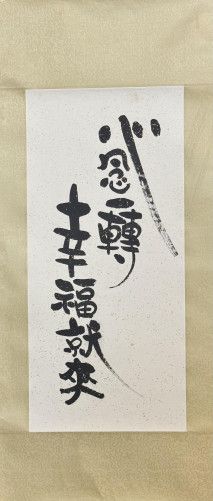 心念一轉
幸福就來